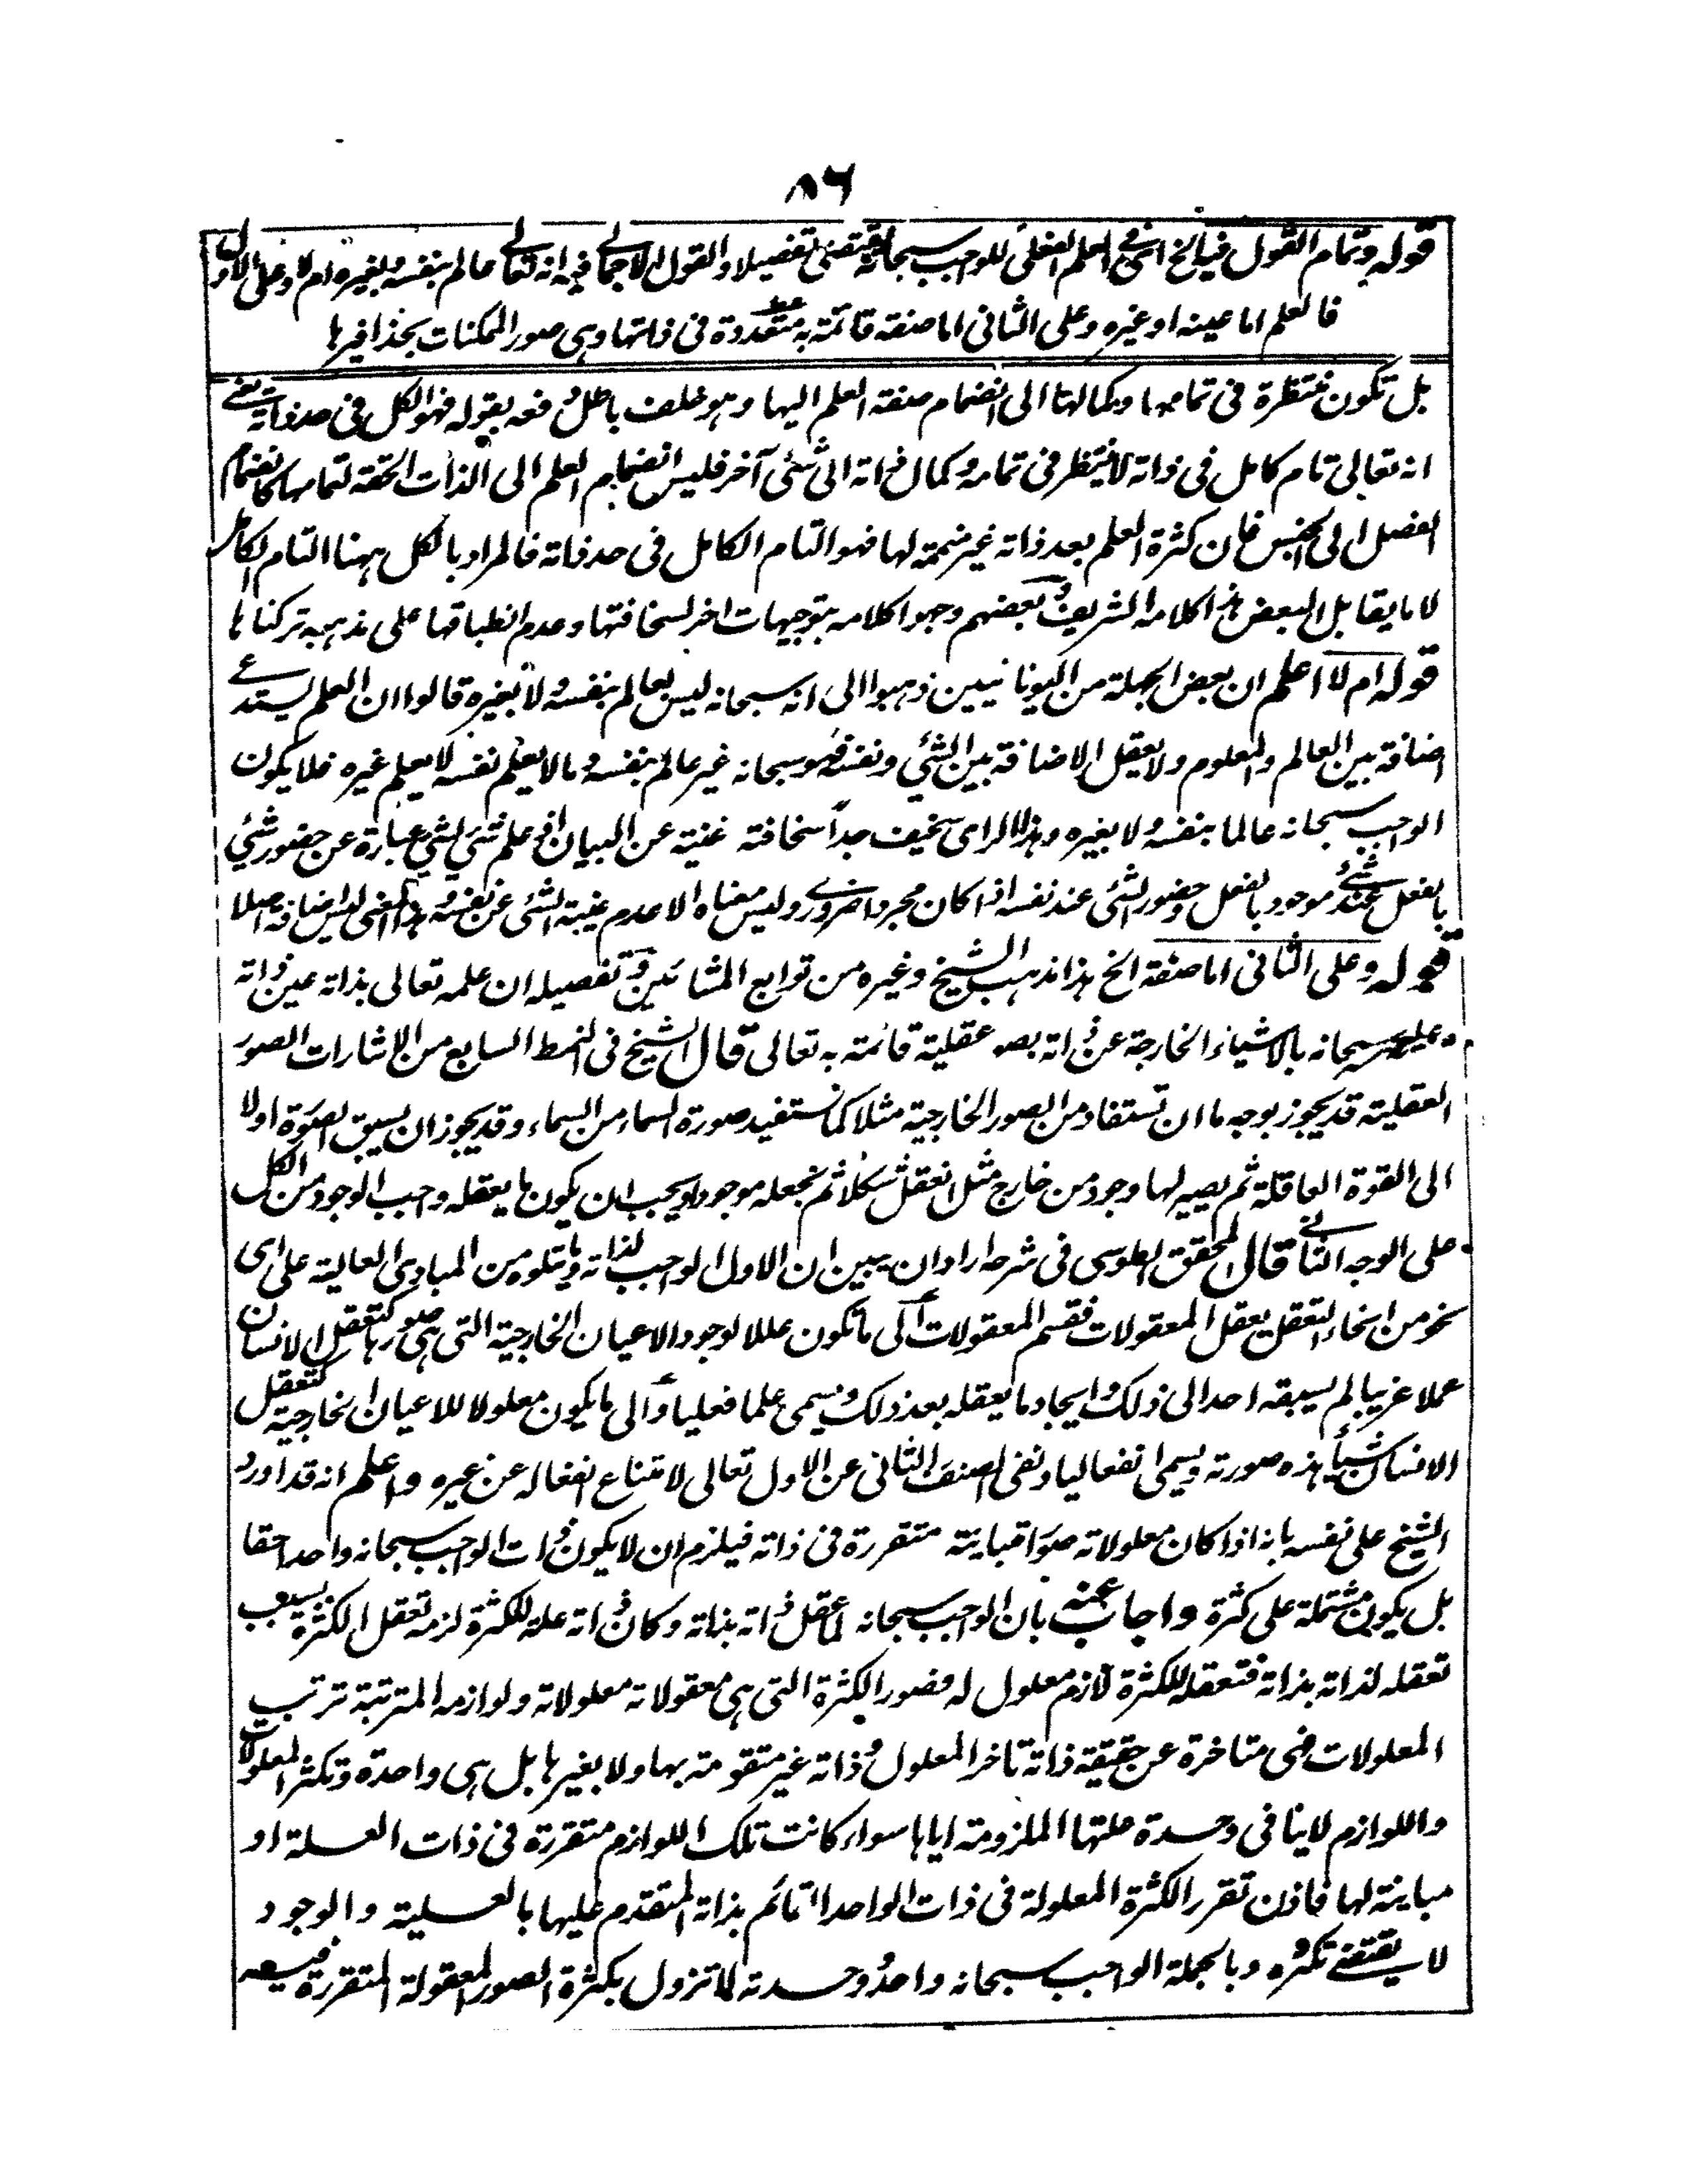 ٨٦
قوله وتمام القول فيه الخ اى فى العلم الفعلى للواجب سبحانه يقتضى تفصيلا والقول الاجمالى فيه انه تعالى عالم بنفسه وبغيره ام لا وعلى الاول
فالعلم اما عينه او غيره وعلى الثانى اما صفة قائمة به متعددة فى ذاتها وهى صور الممكنات بحذافيرها
بل تكون منتظرة فى تمامها وكمالها الى انضمام صفة العلم اليها وهو خلف باطل فدفعه بقوله فهو الكل فى حد ذاته يعنى
انه تعالى تام كامل فى ذاته لا ينتظر فى تمامه وكمال ذاته الى شئى آخر فليس انضمام العلم الى الذات الحقة لتمامها كانضمام
الفصل الى الجنس فان كثرة العلم بعد ذاته غير متممة لها فهو التام الكامل فى حد ذاته فالمراد بالكل ههنا التام الكامل
لا ما يقابل البعض هذا كلامه الشريف وبعضهم وجهوا كلامه بتوجيهات اخر لسخافتها وعدم انطباقها على مذهبه تركناها
قوله ام لا اعلم ان بعض الجهلة من اليونانيين ذهبوا الى انه سبحانه ليس بعالم بنفسه ولا بغيره قالوا ان العلم يستدعى
اضافة بين العالم والمعلوم ولا يعقل الاضافة بين الشئي ونفسه فهو سبحانه غير عالم بنفسه وما لا يعلم نفسه لا يعلم غيره فلا يكون
الواجب سبحانه عالما بنفسه ولا بغيره وهذا الراى سخيف جداً سخافته غنية عن البيان اذ علم شئي لشئي عبارة عن حضور شئي
بالفعل عند شئ موجود بالفعل وحضور الشئى عند نفسه اذا كان مجردا ضرورى وليس معناه الا عدم غيبة الشئى عن نفسه وهذا المعنى ليس اضافة اصلا
قوله وعلى الثانى اما صفة الخ هذا مذهب الشيخ وغيره من توابع المشائين وتفصيله ان علمه تعالى بذاته عين ذاته
وعلمه سبحانه بالاشياء الخارجة عن ذاته بصور عقلية قائمة به تعالى قال الشيخ فى النمط السابع من الاشارات الصور
العقلية قد يجوز بوجه ما ان تستفاد من الصور الخارجية مثلا كما نستفيد صورة السماء من السماء وقد يجوز ان يسبق الصورة اولا
الى القوة العاقلة ثم يصير لها وجود من خارج مثل ما نعقل شكلا ثم نجعله موجودا ويجب ان يكون ما يعقله واجب الوجود من الكل
على الوجه الثانى قال المحقق الطوسى فى شرحه اراد ان يبين ان الاول الواجب لذاته وما يتلوه من المبادى العالية على اى
نحو من انحاء التعقل يعقل المعقولات فقسم المعقولات الى ما تكون عللا لوجود الاعيان الخارجية التى هى صورها كتعقل الانسان
عملا غريبا لم يسبقه احد الى ذلك وايجاد ما يعقله بعد ذلك ويسمى علما فعليا والى ما يكون معلولا للاعيان الخارجية كتعقل
الانسان شيئا هذه صورته ويسمى انفعاليا ونفى الصنف الثانى عن الاول تعالى لامتناع انفعاله عن غيره واعلم انه قد اورد
الشيخ على نفسه بانه اذا كان معلولاته صورا متباينة متقررة فى ذاته فيلزم ان لا يكون ذات الواجب سبحانه واحدا حقا
بل يكون مشتملة على كثرة واجاب عنه بان الواجب سبحانه لما عقل ذاته بذاته وكان ذاته علة للكثرة لزمه تعقل الكثرة بسبب
تعقله لذاته بذاته فتعقله للكثرة لازم معلول له فصور الكثرة التى هى معقولاته معلولاته ولوازمه المترتبة ترتب
المعلولات فهى متاخرة عن حقيقة ذاته تاخر المعلول وذاته غير متقومة بها ولا بغيرها بل هى واحدة وتكثر المعلولات
واللوازم لا ينافى وحدة علتها الملزومة اياها سواء كانت تلك اللوازم متقررة فى ذات العلة او
مباينة لها فاذن تقرر الكثرة المعلولة فى ذات الواحد القائم بذاته المتقدم عليها بالعلية والوجود
لا يقتضى تكثره وبالجملة الواجب سبحانه واحد ووحدته لا تزول بكثرة الصور المعقولة المتقررة فيه